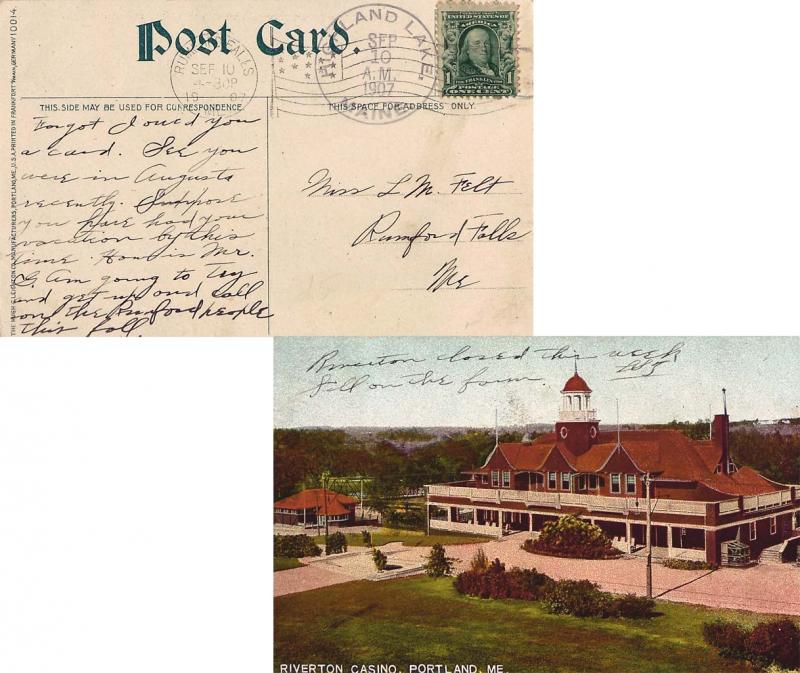 Post Card.
UNITED STATES OF
AMERICA
1 FRANKLIN 1
POSTAGE
ONE CENT
RUMFORD FALLS
SEP 10
-30P
19 07
ME.
LAND LAKE,
SEP
10
A.M.
1907
MAINE
THIS SIDE MAY BE USED FOR CORRESPONDENCE.
THIS SPACE FOR ADDRESS ONLY.
THE HUGH C. LEIGHTON CO., MANUFACTURERS, PORTLAND, ME., U.S.A. PRINTED IN FRANKFORT Main, GERMANY 10014.
Forgot I owed you
a card. See you
were in Augusta
recently. Suppose
you have had your
vacation by this
time. How is Mr.
G. Am going to try
and get up and call
on the Rumford people
this fall.
Miss L. M. Felt
Rumford Falls
Me
Riverton closed this week
Still on the farm.
RIVERTON CASINO, PORTLAND, ME.